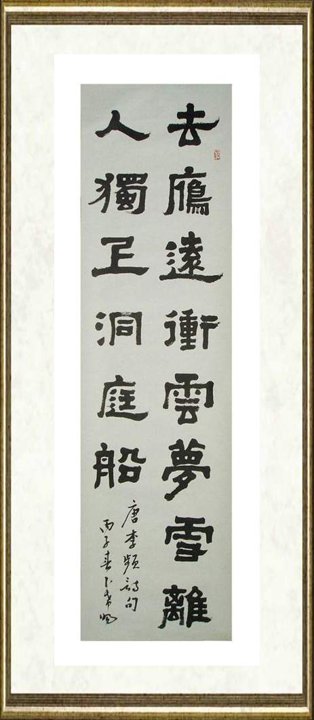 去鴈遠衝雲夢雪離
人獨上洞庭船
唐李頻詩句
丙子春